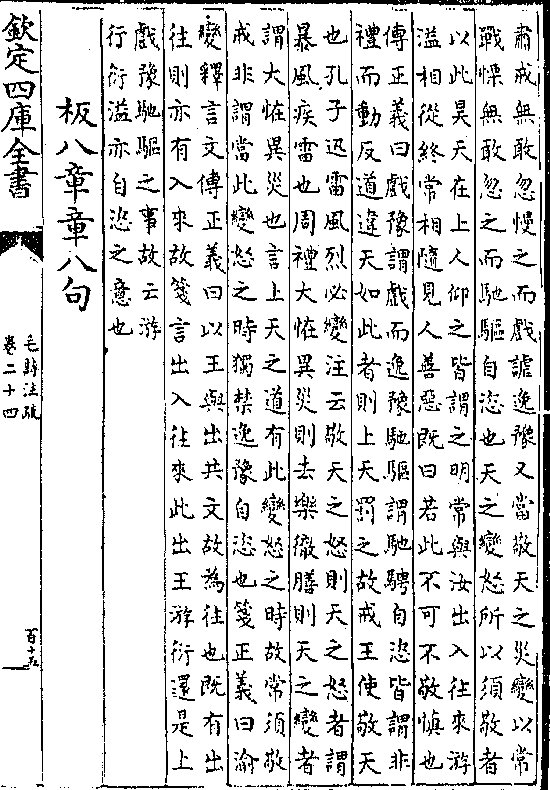 肅戒無敢忽慢之而戲謔逸豫又當敬天之災變以常
戰慄無敢忽之而馳驅自恣也天之變怒所以須敬者
以此昊天在上人仰之皆謂之明常與汝出入往來游
溢相從終常相隨見人善惡既曰若此不可不敬慎也
傳正義曰戲豫謂戲而逸豫馳驅謂馳騁自恣皆謂非
禮而動反道違天如此者則上天罰之故戒王使敬天
也孔子迅雷風烈必變注云敬天之怒則天之怒者謂
暴風疾雷也周禮大恠異災則去樂徹膳則天之變者
謂大恠異災也言上天之道有此變怒之時故常須敬
戒非謂當此變怒之時獨禁逸豫自恣也箋正義曰渝
變釋言文傳正義曰以王與出共文故為往也既有出
往則亦有入來故箋言出入往來此出王游衍還是上
戲豫馳驅之事故云游
行衍溢亦自恣之意也
板八章章八句
欽定四庫全書
毛詩注疏
卷二十四
百十五